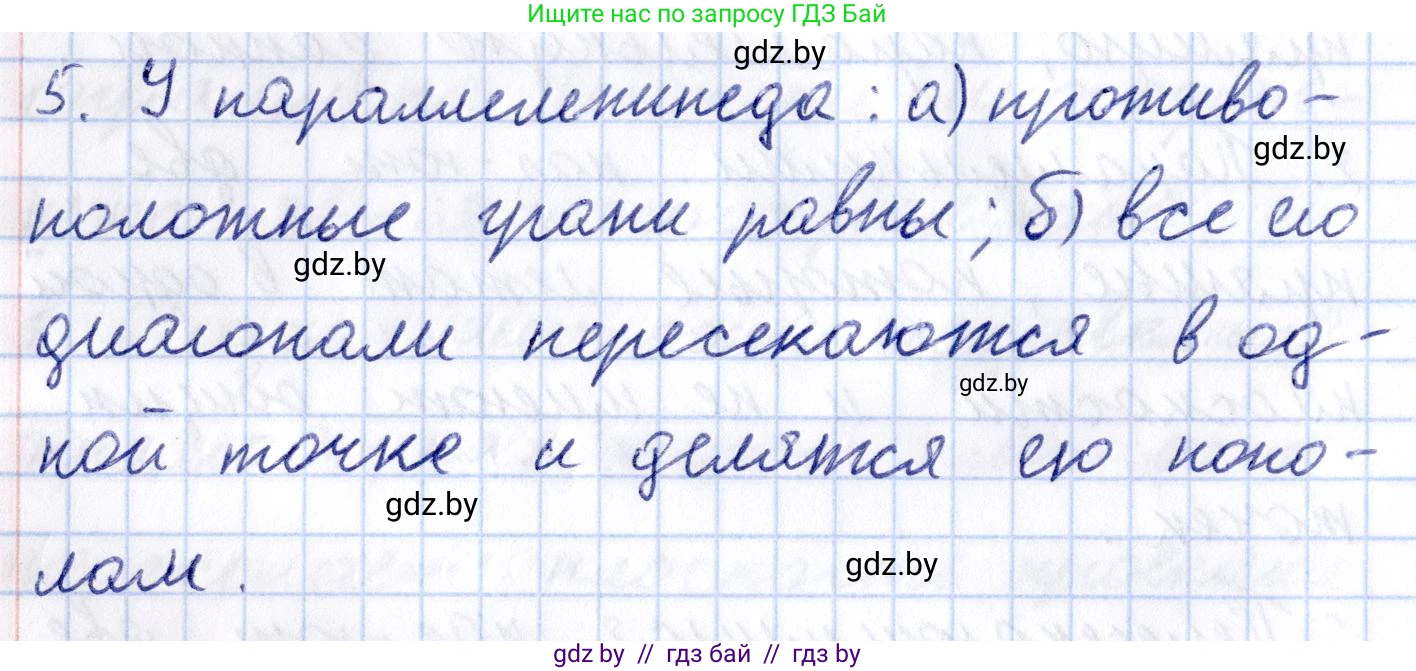 Ищите нас по запросу ГДЗ Бай
gdz.by
5. У параллелепипеда: а) противо-
gdz.by
положные грани равны; б) все его
gdz.by
диагонали пересекаются в од-
gdz.by
ной точке и делятся ею попо-
gdz.by
лам.
gdz.by
gdz.by // гдз бай // gdz.by